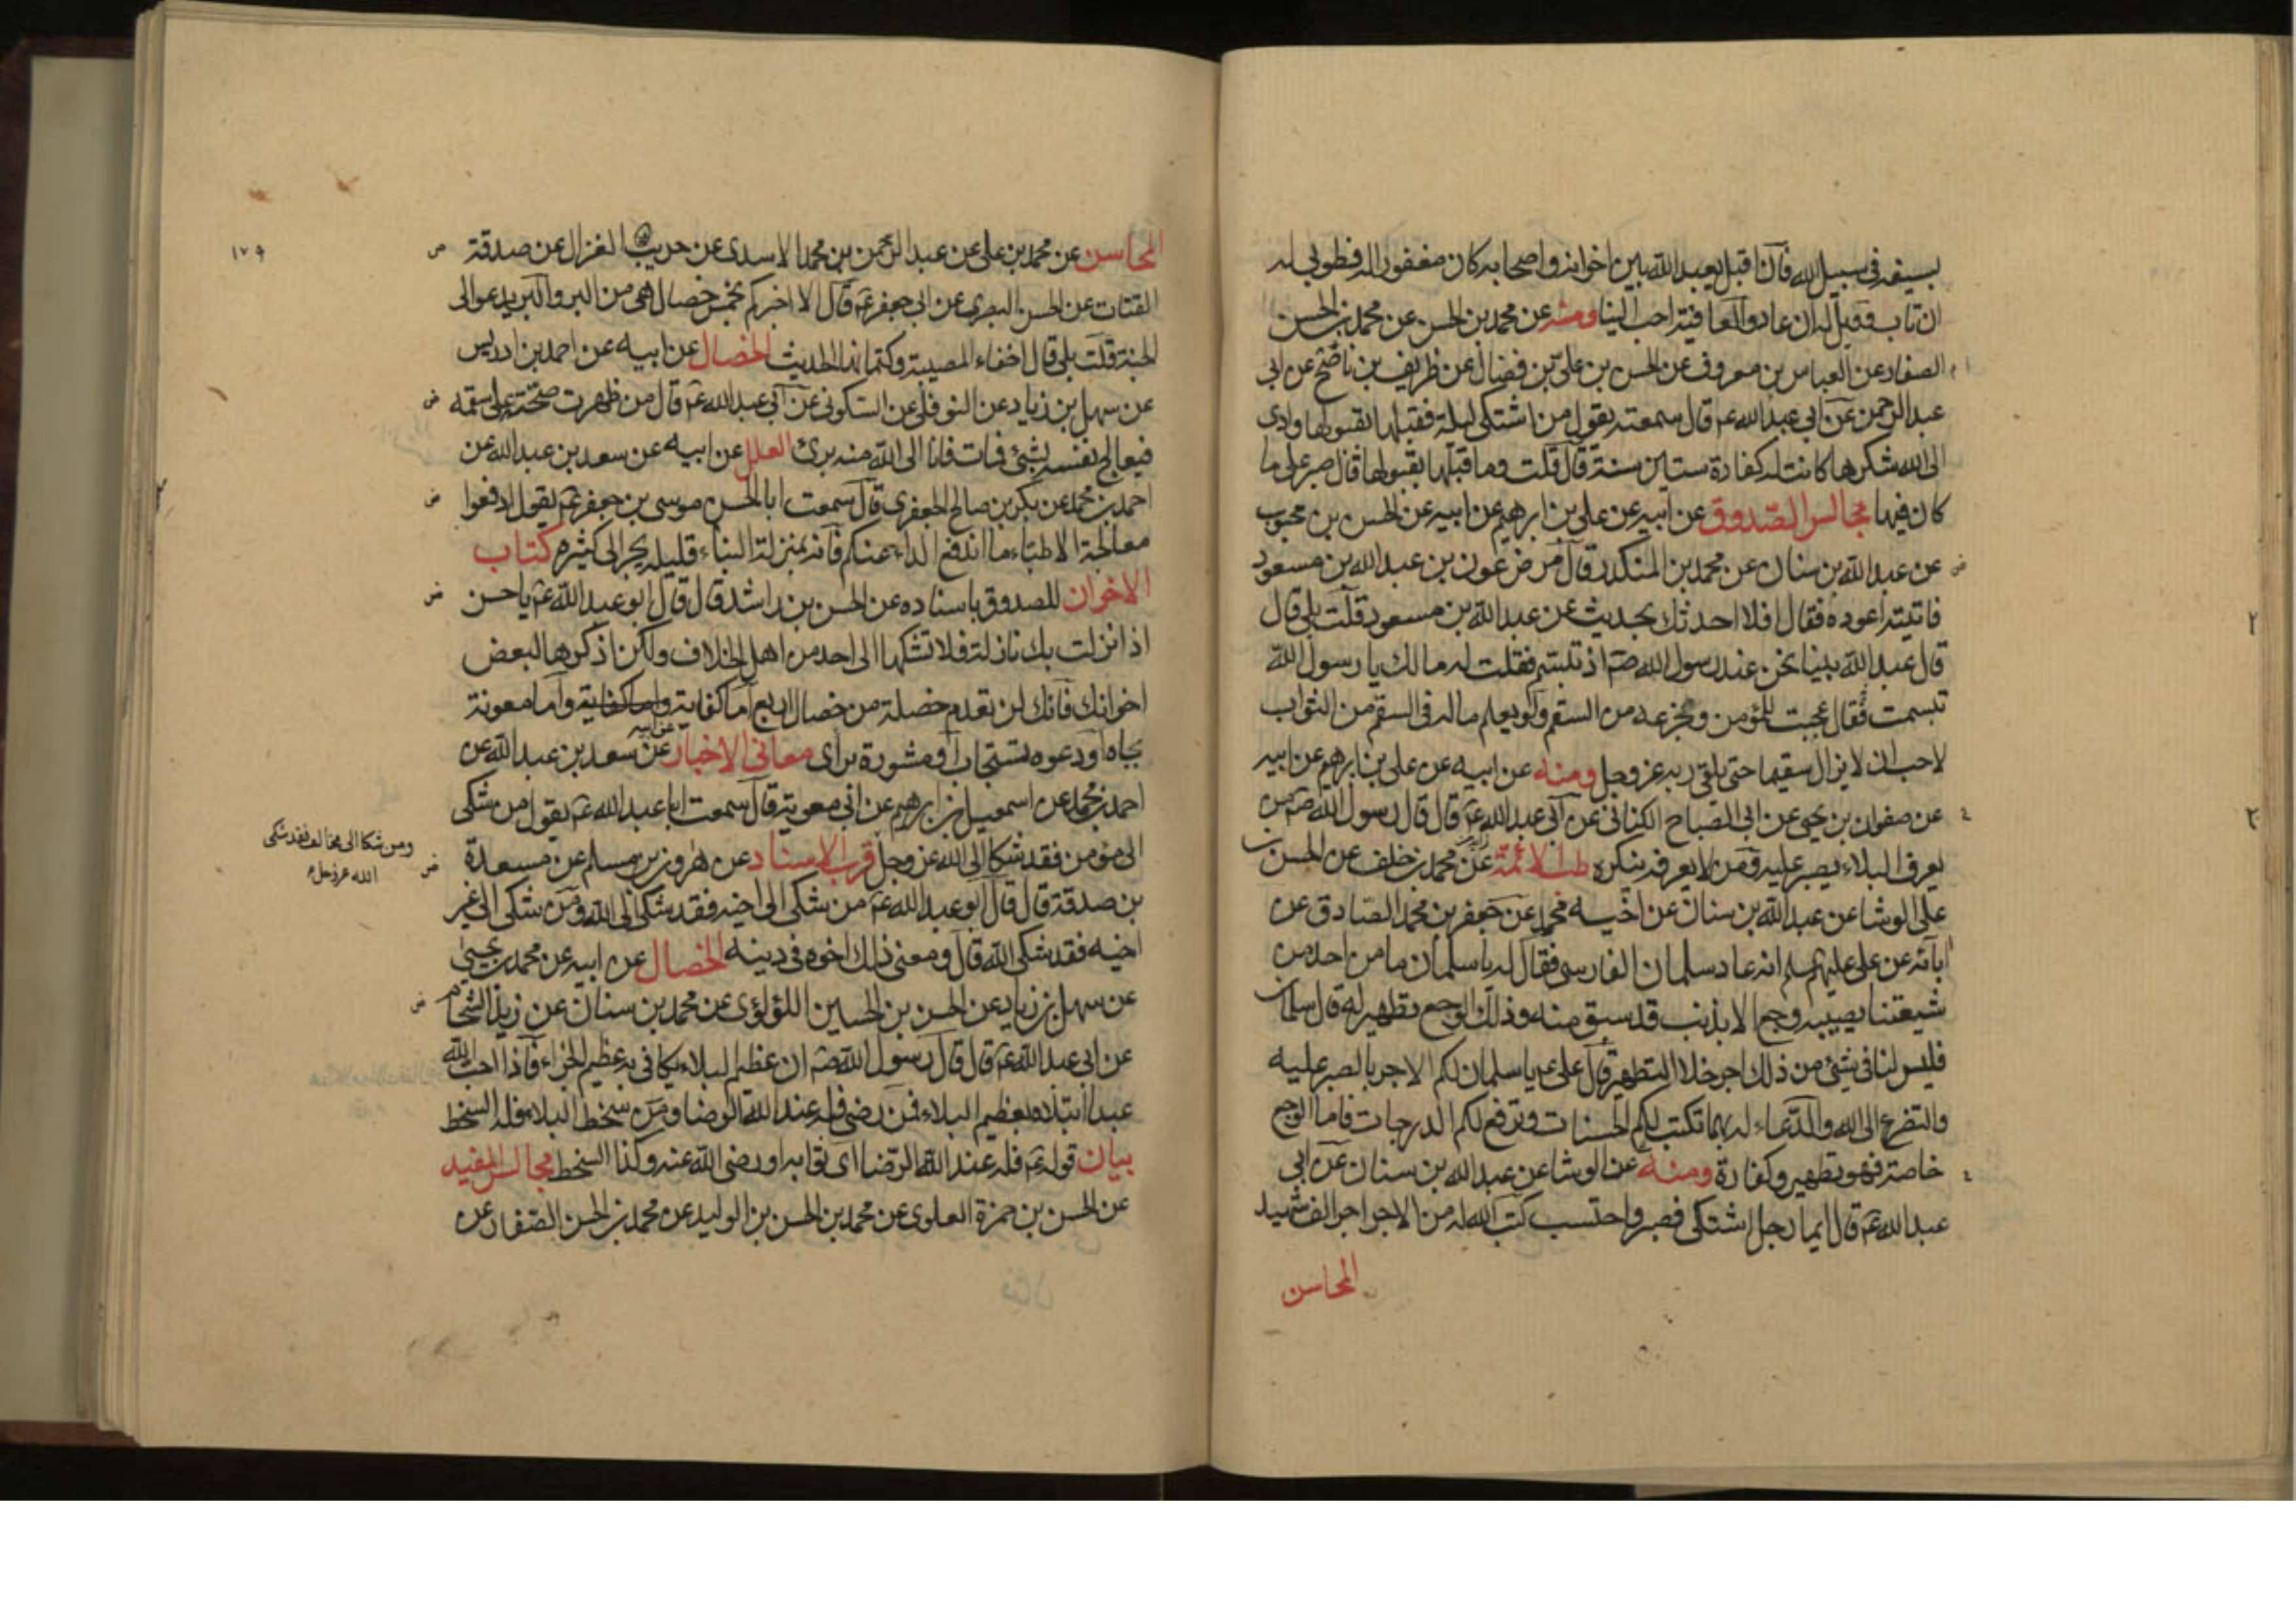 بسيفه في سبيل الله قال اقبل يعبد الله بين اخوانه واصحابه كان مغفورا له فطوبى له
ان تاب فقيل له ان عادوا لعافية احب الينا ومنه عن محمد بن الحسن عن محمد بن الحسن
الصفار عن العباس بن معروف عن الحسن بن علي بن فضال عن ظريف بن ناصح عن ابي
عبد الرحمن عن ابي عبد الله ع قال سمعته يقول من اشتكى ليلة فقبلها بقبولها وادى
الى الله شكرها كانت له كفارة ستين سنة قال قلت وما قبلها بقبولها قال صبر على ما
كان فيها مجالس الصدوق عن ابيه عن علي بن ابرهيم عن ابيه عن الحسن بن محبوب
عن عبد الله بن سنان عن محمد بن المنكدر قال مرض عون بن عبد الله بن مسعود
فاتيته اعوده فقال افلا احدثك بحديث عن عبد الله بن مسعود قلت بلى قال
قال عبد الله بينا نحن عند رسول الله ص اذ تبسم فقلت له مالك يا رسول الله
تبسمت فقال عجبت للمؤمن وجزعه من السقم ولو يعلم ماله في السقم من الثواب
لاحب ان لا يزال سقيما حتى يلقى ربه عز وجل ومنه عن ابيه عن علي بن ابرهيم عن ابيه
عن صفوان بن يحيى عن ابي الصباح الكناني عن ابي عبد الله ع قال قال رسول الله ص من
يعرف البلاء يصبر عليه ومن لا يعرفه ينكره طب الائمة عن محمد بن خلف عن الحسن بن
علي الوشا عن عبد الله بن سنان عن اخيه محمد عن جعفر بن محمد الصادق عن
ابائه عن علي عليهم السلم انه عاد سلمان الفارسي فقال له يا سلمان ما من احد من
شيعتنا يصيبه وجع الا بذنب قد سبق منه وذلك الوجع تطهير له قال سلمان
فليس لنا في شئ من ذلك اجر خلا التطهير قال علي ع يا سلمان لكم الاجر بالصبر عليه
والتضرع الى الله والدعاء له بهما تكتب لكم الحسنات وترفع لكم الدرجات فاما الوجع
خاصة فهو تطهير وكفارة ومنه عن الوشا عن عبد الله بن سنان عن ابي
عبد الله ع قال ايما رجل اشتكى فصبر واحتسب كتب الله له من الاجر اجر الف شهيد
المحاسن
١٧٩
المحاسن عن محمد بن علي عن عبد الرحمن بن محمد الاسدي عن حريب الغزال عن صدقة
القتات عن الحسن البصري عن ابي جعفر ع قال الا اخبركم بخمس خصال هي من البر والبر يدعو الى
الجنة قلت بلى قال اخفاء المصيبة وكتمانها الحديث الخصال عن ابيه عن احمد بن ادريس
عن سهل بن زياد عن النوفلي عن السكوني عن ابي عبد الله ع قال من ظهرت صحته على سقمه
فيعالج نفسه بشئ فمات فانا الى الله منه برئ العلل عن ابيه عن سعد بن عبد الله عن
احمد بن محمد عن بكر بن صالح الجعفري قال سمعت ابا الحسن موسى بن جعفر ع يقول ادفعوا
معالجة الاطباء ما اندفع الداء عنكم فانه بمنزلة البناء قليله يجر الى كثيره كتاب
الاخوان للصدوق باسناده عن الحسن بن راشد قال قال ابو عبد الله ع يا حسن
اذا نزلت بك نازلة فلا تشكها الى احد من اهل الخلاف ولكن اذكرها لبعض
اخوانك فانك لن تعدم خصلة من خصال اربع اما كفاية واما كفاية واما معونة
بجاه او دعوه تستجاب او مشورة براى معاني الاخبار عن ابيه عن سعد بن عبد الله عن
احمد بن محمد عن اسمعيل بن ابرهيم عن ابي معوية قال سمعت ابا عبد الله ع يقول من شكى
الى مؤمن فقد شكا الى الله عز وجل قرب الاسناد عن هرون بن مسلم عن مسعدة
ومن شكا الى مخالف فقد شكى
الله عز وجل
بن صدقة قال قال ابو عبد الله ع من شكى الى اخيه فقد شكى الى الله ومن شكى الى غير
اخيه فقد شكى الله قال ومعنى ذلك اخوه في دينه الخصال عن ابيه عن محمد بن يحيى
عن سهل بن زياد عن الحسن بن الحسين اللؤلؤي عن محمد بن سنان عن زيد الشحام
عن ابي عبد الله ع قال قال رسول الله ص ان عظيم البلاء يكافي به عظيم الجزاء فاذا احب الله
عبدا ابتلاه بعظيم البلاء فمن رضى فله عند الله الرضا ومن سخط البلاء فله السخط
بيان قوله ع فله عند الله الرضا اى ثوابه او رضى الله عنه وكذا السخط مجالس المفيد
عن الحسن بن حمزة العلوي عن محمد بن الحسن بن الوليد عن محمد بن الحسن الصفار عن